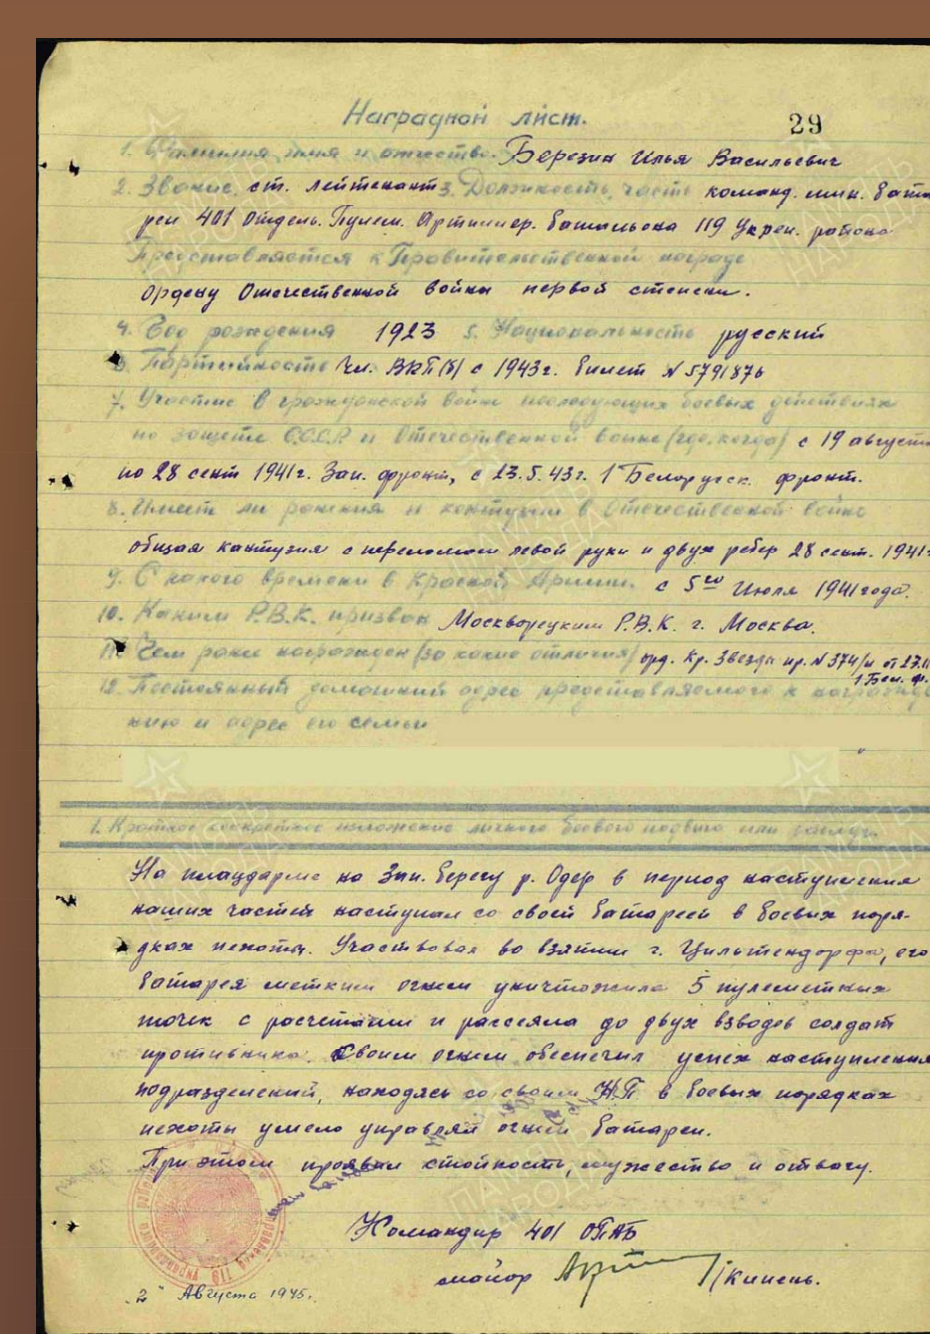 Наградной лист.
29
1. Фамилия, имя и отчество. Березин Илья Васильевич
2. Звание, ст. лейтенант 3. Должность, часть команд. мин. бата
реи 401 Отдельн. Пулем. Артиллер. батальона 119 Укреп. района
Представляется к Правительственной награде
Ордену Отечественной войны первой степени.
4. Год рождения 1923 5. Национальность русский
6. Партийность Чл. ВКП(б) с 1943г. билет № 5791876
7. Участие в гражданской войне последующих боевых действиях
по защите СССР и Отечественной войне (где, когда) с 19 августа
по 28 сент 1941г. Зап. фронт, с 23.5.43г. 1 Белорусск. фронт.
8. Имеет ли ранения и контузии в Отечественной войне
общая контузия с переломом левой руки и двух ребер 28 сент. 1941г
9. С какого времени в Красной Армии. с 5го Июля 1941 года.
10. Каким Р.В.К. призван Москворецким Р.В.К. г. Москва.
11. Чем ранее награжден (за какие отличия) орд. Кр. Звезды пр. № 374/н от
1 Бел. ф.
12. Постоянный домашний адрес представляемого к награжде
нию и адрес его семьи
1. Краткое конкретное изложение личного боевого подвига или заслуг.
На плацдарме на Зап. берегу р. Одер в период наступления
наших частей наступал со своей батареей в боевых поря-
дках пехоты. Участвовал во взятии г. Цильтендорфа, его
батарея метким огнем уничтожила 5 пулеметных
точек с расчетами и рассеяла до двух взводов солдат
противника. Своим огнем обеспечил успех наступления
подразделений, находясь со своим Н.П. в боевых порядках
пехоты умело управлял огнем батареи.
При этом проявил стойкость, мужество и отвагу.
Командир 401 ОПАБ
майор /Кипень.
"2" Августа 1945.
ПАМЯТЬ
НАРОДА